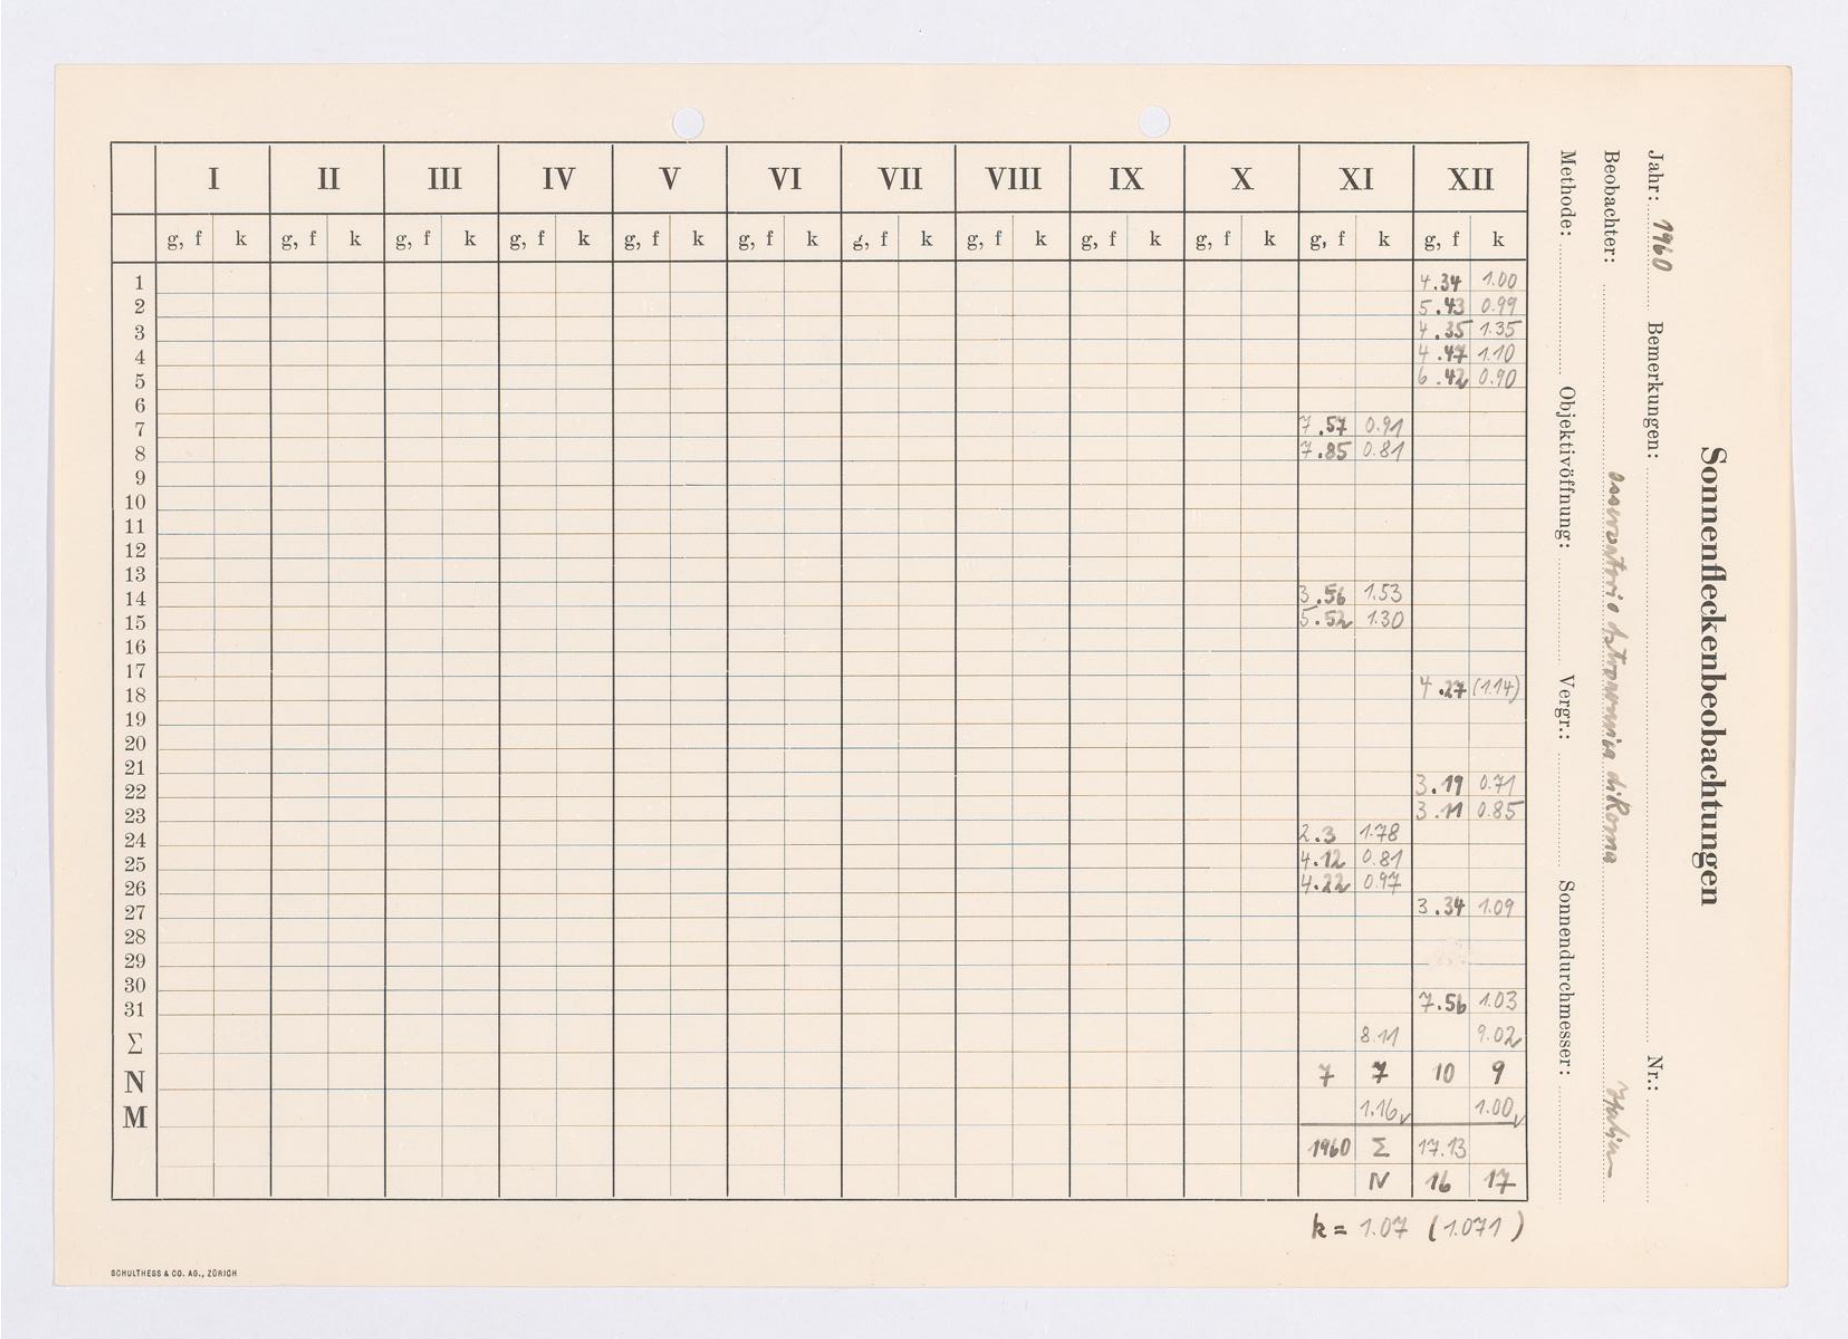 Sonnenfleckenbeobachtungen
Jahr: 1960 Bemerkungen: Nr.:
Beobachter: osservatorio astronomico di Roma Italien
Methode: Objektivöffnung: Vergr.: Sonnendurchmesser:
I II III IV V VI VII VIII IX X XI XII
g, f k g, f k g, f k g, f k g, f k g, f k g, f k g, f k g, f k g, f k g, f k g, f k
1 4.34 1.00
2 5.43 0.99
3 4.35 1.35
4 4.47 1.10
5 6.42 0.90
6
7 7.57 0.91
8 7.85 0.81
9
10
11
12
13
14 3.56 1.53
15 5.52 1.30
16
17
18 4.27 (1.14)
19
20
21
22 3.19 0.71
23 3.11 0.85
24 2.3 1.78
25 4.12 0.81
26 4.22 0.97
27 3.34 1.09
28
29
30
31 7.56 1.03
Σ 8.11 9.02
N 7 7 10 9
M 1.16 1.00
1960 Σ 17.13
N 16 17
k = 1.07 (1.071)
SCHULTHESS & CO. AG., ZÜRICH